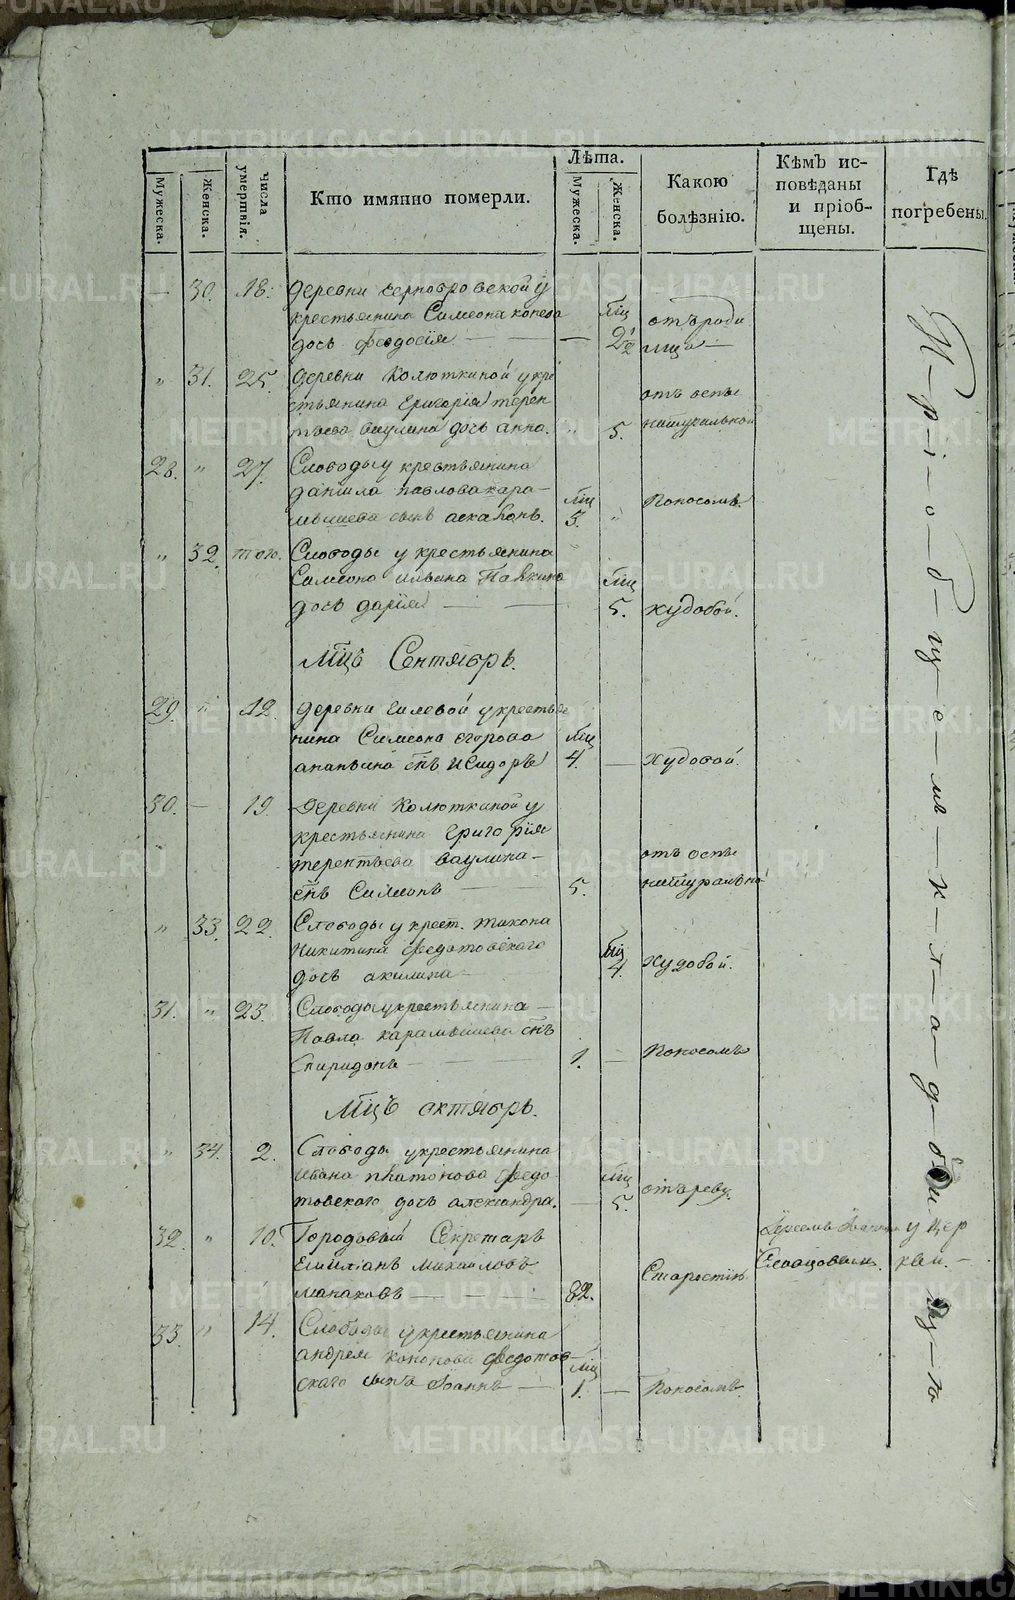 Мужеска.
Женска.
Числа умертвія.
Кто имянно померли.
Лѣта.
Мужеска.
Женска.
Какою болѣзнію.
Кѣмъ ис-
повѣданы
и пріоб-
щены.
Гдѣ
погребены.
— 30. 18. деревни у
крестьянина Симеона
дочь Феодосія — мц 2 1/2 отъ роди
мца
„ 31. 25. деревни Колюткиной у кре
стьянина Григорія терен
тьева ваулина дочь анна. „ 5. отъ оспы
натуральной
28. „ 27. Слободы у крестьянина
данила павлова кара-
мышева сынъ мц 3. „ Поносомъ.
„ 32. того. Слободы у крестьянина
Симеона ильина
дочь дарія — мц 5. худобой.
Мцъ Сентябрь.
29. „ 12. деревни у крестья
нина Симеона егорова
ананьина снъ Исидоръ мц 4. — Худобой.
30. — 19. Деревни Колюткиной у
крестьянина Григорія
терентьева ваулина
снъ Симеонъ — 5. отъ оспы
натурально
„ 33. 22. Слободы у крест. тихона
никитина федотовскаго
дочь акилина — мц 4. Худобой.
31. „ 23. Слободы у крестьянина —
Павла карамышева снъ
Спиридонъ — 1. — Поносомъ
Мцъ октябрь.
„ 34. 2. Слободы у крестьянина
ивана платонова федо
товскаго дочь александра. — мц 5. отъ реву.
32. „ 10. Городовый Секретарь
Емиліанъ михайловъ
— 82. Старостію
у цер
кви. —
33. „ 14. Слободы у крестьянина
андрея кононова федотов-
скаго сынъ Іоаннъ — мц 1. — Поносомъ.
При общемъ кладбищу